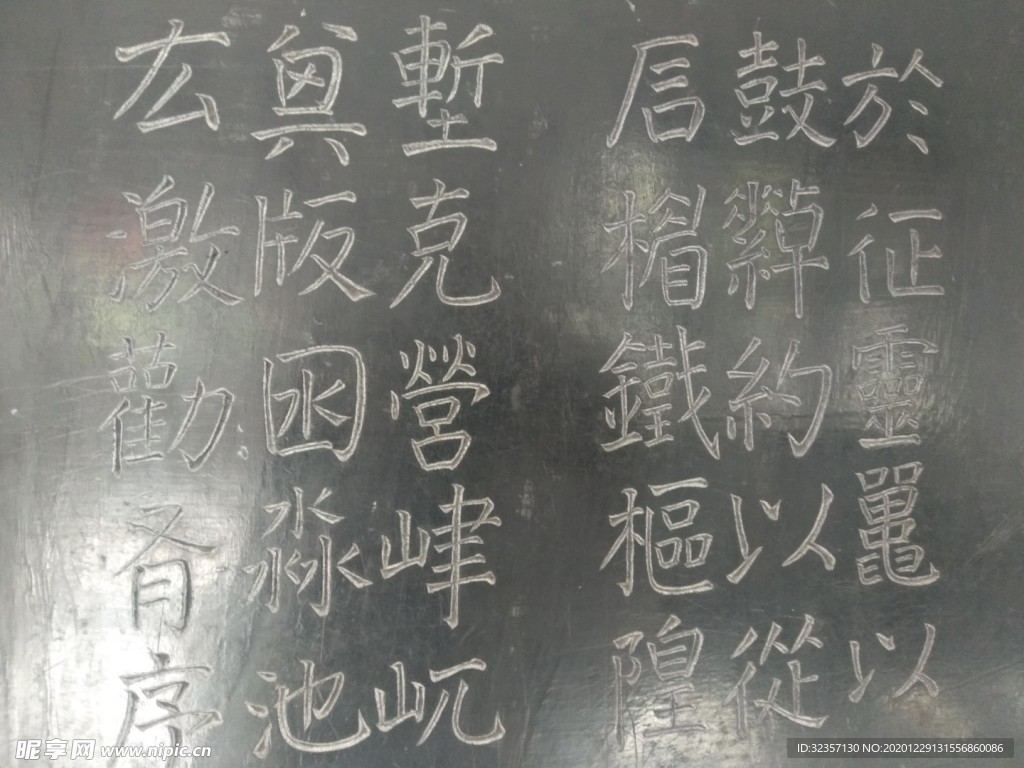 於征靈鼉以
鼓綽約以從
启楣鐵樞隍
塹克營嵂屼
版囦淼池
厷激勸胥序
昵享网 www.nipic.cn
ID:32357130 NO:20201229131556860086